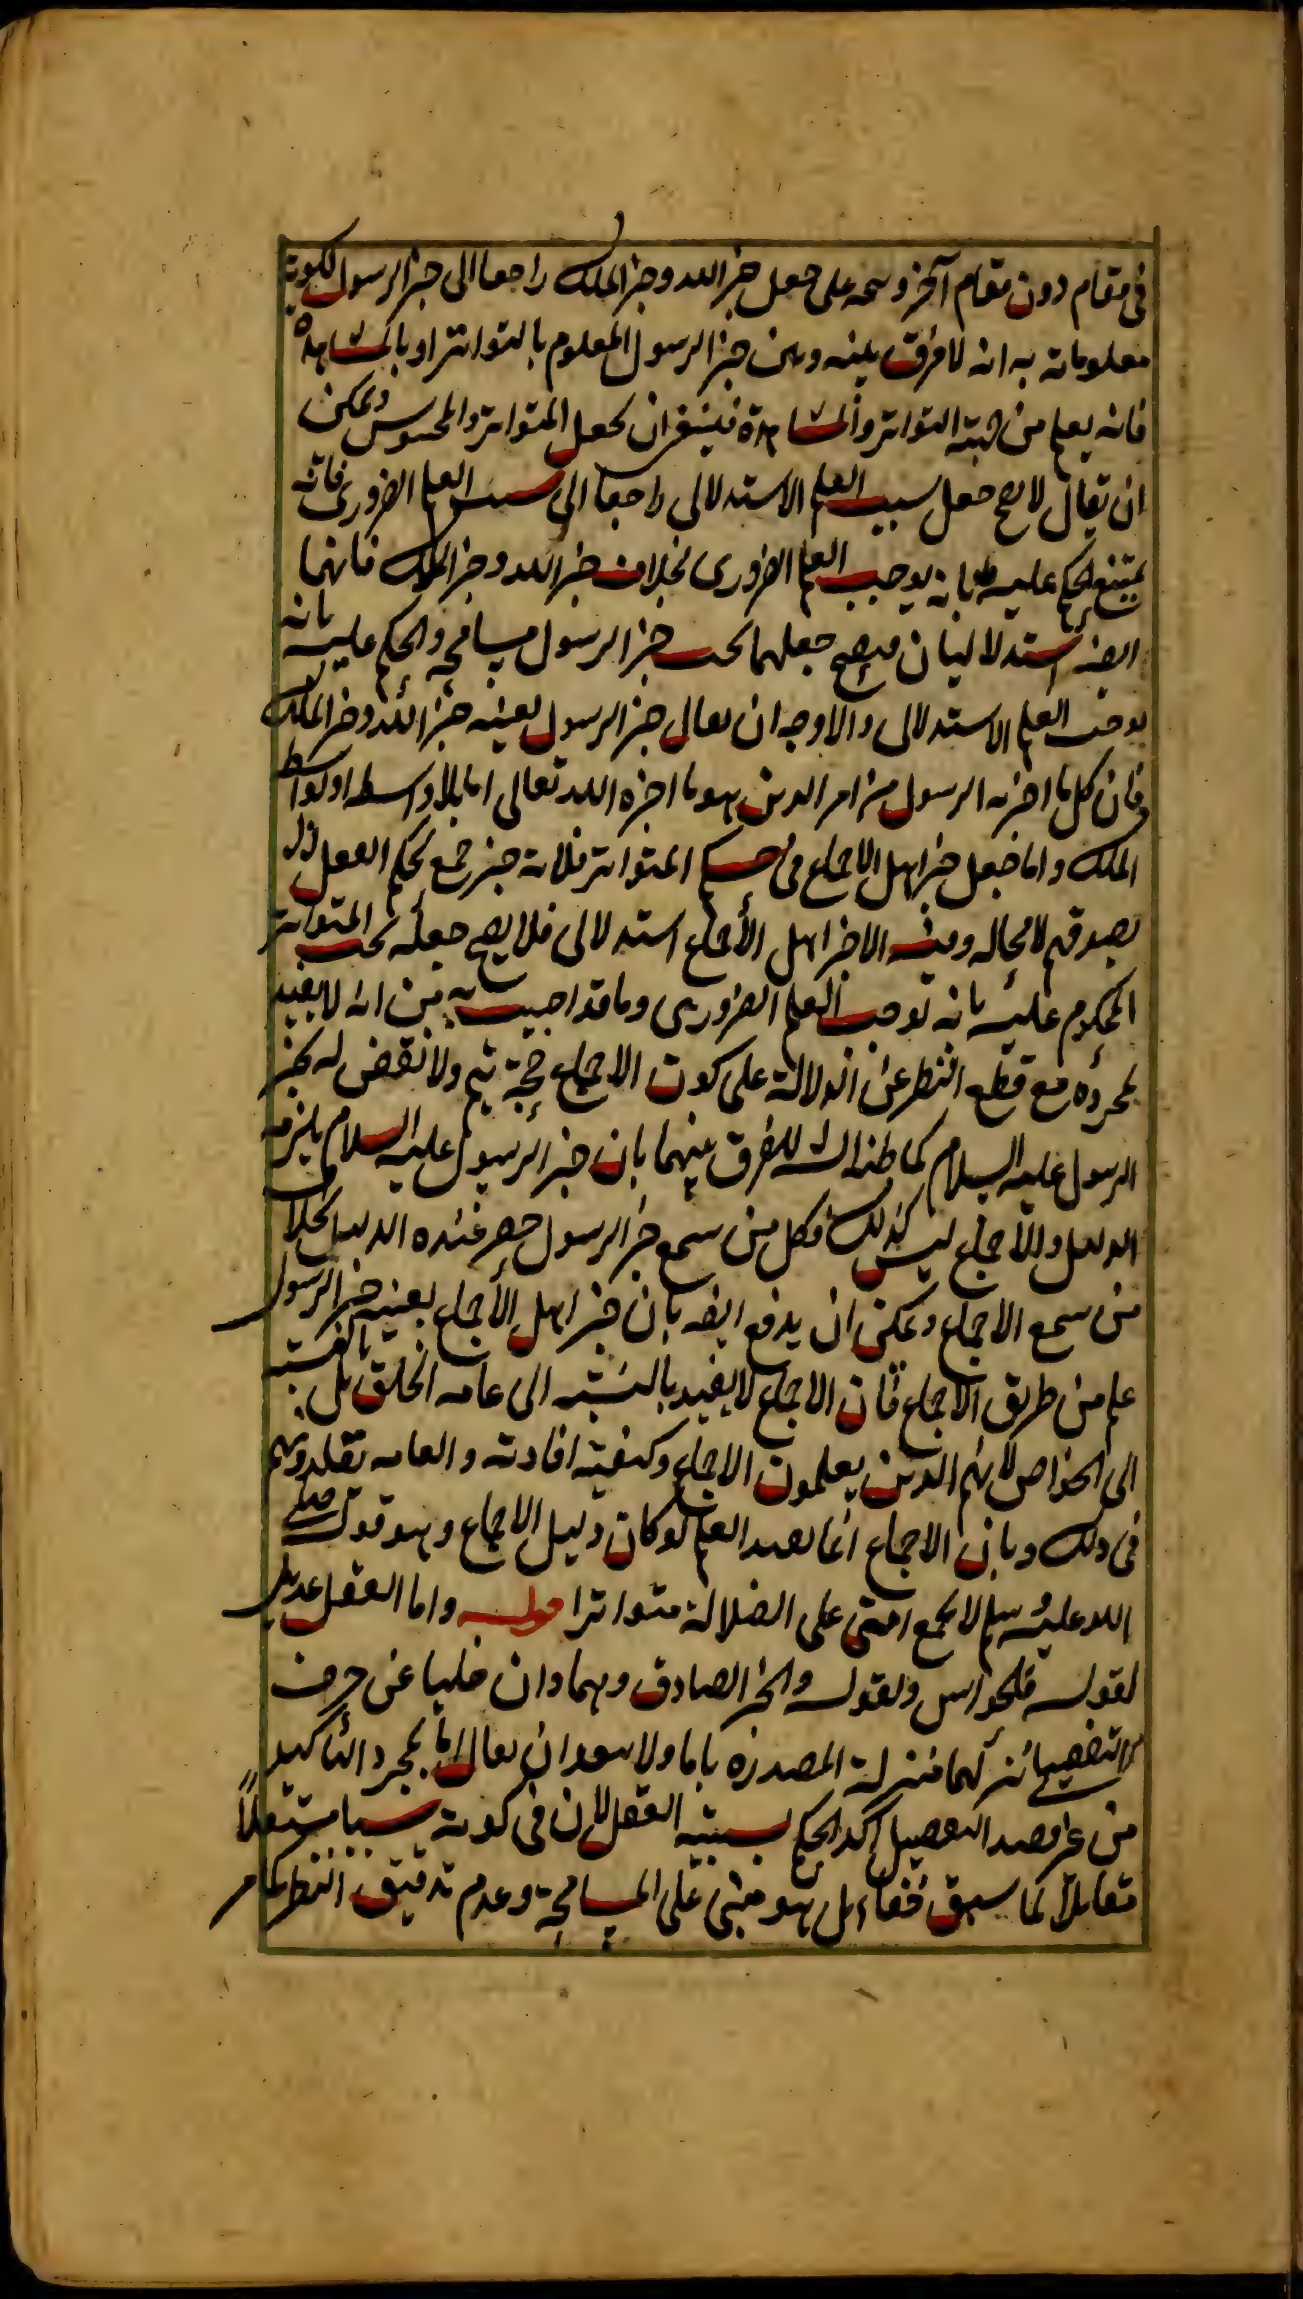 فى مقام دون مقام آخر وسحه على جعل خبر الله وخبر الملك راجعا الى خبر الرسول لكونه
معلوما به انه لا فرق بينه وبين خبر الرسول المعلوم بالتواتر او بالمشاهدة
فانه يعلم من جهته التواتر والمشاهدة فينبغى ان يجعل المتواتر والمحسوس ويمكن
ان يقال لا يصح جعل سبب العلم الاستدلالى راجعا الى سبب العلم الضرورى فانه
يمتنع الحكم عليه بانه يوجب العلم الضرورى بخلاف خبر الله وخبر الملك فانهما
ايضا استدلاليان فيصح جعلهما تحت خبر الرسول مسامحة والحكم عليه بانه
يوجب العلم الاستدلالى والاوجه ان يقال خبر الرسول بعينه خبر الله وخبر الملك
فان كل ما اخبر به الرسول من امر الدين هو ما اخبره الله تعالى اما بلا واسطه او بواسطه
الملك واما جعل خبر اهل الاجماع فى حكم المتواتر فلانه خبر جمع يحكم العقل
بصدقهم لا محاله وفيه ان خبر اهل الاجماع استدلالى فلا يصح جعله تحت المتواتر
المحكوم عليه بانه يوجب العلم الضرورى وما قد اجيب به من انه لا يفيد
بمجرده مع قطع النظر عن الدلالة على كون الاجماع حجة تم ولا نقض له بخبر
الرسول عليه السلام كما ظنه الشه للفرق بينهما بان خبر الرسول عليه السلام يلزمه
الدليل والاجماع ليس كذلك فكل من سمع خبر الرسول حصر عنده الدليل بخلاف
من سمع الاجماع ويمكن ان يدفع ايضه بان خبر اهل الاجماع بعينه خبر الرسول
علم من طريق الاجماع فان الاجماع لا يفيد بالنسبة الى عامه الخلق بل بالنسبة
الى الخواص لانهم الذين يعلمون الاجماع وكيفيته افادته والعامه تقلدونهم
فى ذلك وبان الاجماع انما يفيد العلم لو كان دليل الاجماع وهو قوله صلى
الله عليه وسلم لا يجمع امتى على الضلالة متواترا قوله واما العقل عديل
لقوله فالحواس ولقوله والخبر الصادق وهما وان خليا عن حرف
التفصيل لكنهما بمنزلة المصدرة باما ولا يبعد ان يقال اما لمجرد التاكيد
من غير قصد التفصيل اكد الحكم بسببيه العقل لان فى كونه سببا مستقلاً
مقابلاً لما سبق خفاء بل هو مبنى على المسامحة وعدم تدقيق النظر كما مر